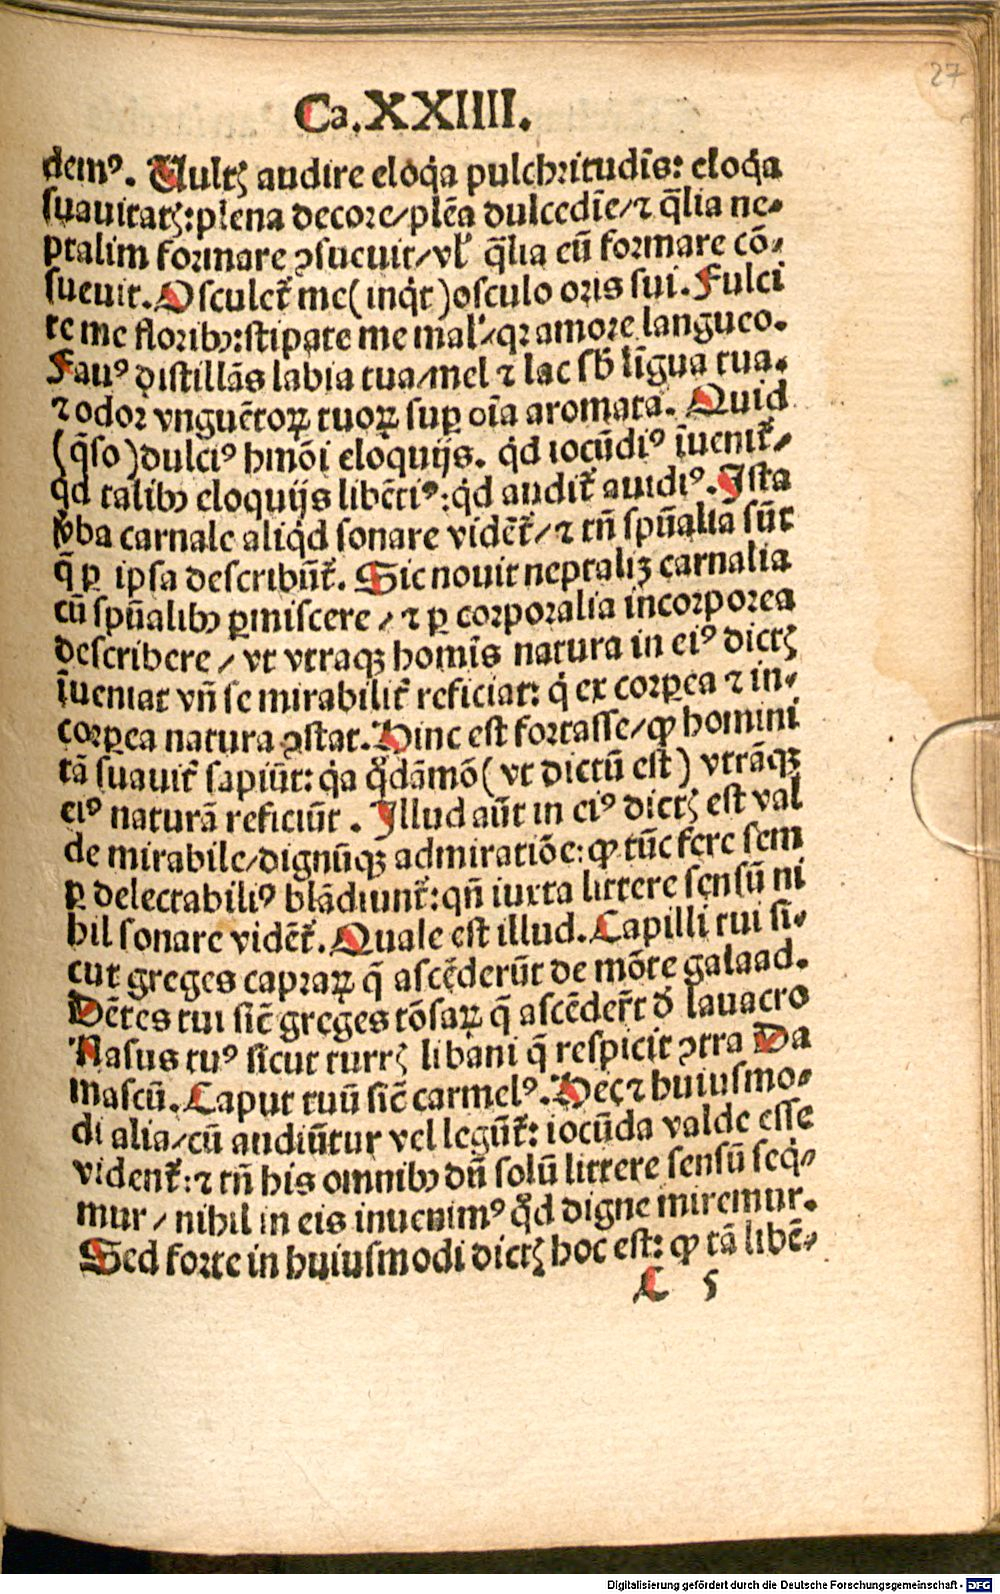 27
Ca.XXIIII.
demꝰ. Vultꝭ audire eloq̇a pulchritudīs: eloq̇a
suauitatꝭ: plena decore/plēa dulcedīe/⁊ q̄lia ne-
ptalim formare ꝯsueuit/vl' q̄lia eū formare cō-
sueuit. Osculet᷑ me (inq̇t) osculo oris sui. Fulci
te me floribꝫ: stipate me mal'/qꝛ amore langueo.
Fauꝰ distillās labia tua/mel ⁊ lac sb̄ līgua tua.
⁊ odor vnguētoꝝ tuoꝝ suꝑ oīa aromata. Quid
(q̄so) dulciꝰ hmōi eloquijs. qͥd iocūdiꝰ īuenit᷑/
qͥd talibꝫ eloquijs libētiꝰ: qͥd audit᷑ auidiꝰ. Ista
v̓ba carnale aliqͥd sonare vidēt᷑/⁊ tn̄ spūalia sūt
q̄ ꝑ ipsa describūt᷑. Sic nouit neptalīꝫ carnalia
cū spūalibꝫ ꝑmiscere/⁊ ꝑ corporalia incorporea
describere/vt vtraqꝫ homīs natura in eiꝰ dictꝭ
īueniat vn̄ se mirabilit᷑ reficiat: qͥ ex corꝑea ⁊ in-
corꝑea natura ꝯstat. Hinc est fortasse/ꝙ homini
tā suauit᷑ sapiūt: qͥa qͦdāmō (vt dictū est) vtrāqꝫ
eiꝰ naturā reficiūt. Illud aūt in eiꝰ dictꝭ est val
de mirabile/dignūqꝫ admiratiōe: ꝙ tūc fere sem
ꝑ delectabiliꝰ blādiunt᷑: qn̄ iuxta littere sensū ni
hil sonare vidēt᷑. Quale est illud. Capilli tui si-
cut greges capraꝝ q̄ ascēderūt de mōte galaad.
Dētes tui sic̄ greges tōsaꝝ q̄ ascēder̄t d̓ lauacro
Nasus tuꝰ sicut turrꝭ libani q̄ respicit ꝯtra Da
mascū. Caput tuū sic̄ carmelꝰ. Hec ⁊ huiusmo-
di alia/cū audiūtur vel legūt᷑: iocūda valde esse
vident᷑: ⁊ tn̄ his omnibꝫ dū solū littere sensū seqͥ-
mur/nihil in eis inuenimꝰ qͦd digne miremur.
Sed forte in huiusmodi dictꝭ hoc est: ꝙ tā libē-
C 5
Digitalisierung gefördert durch die Deutsche Forschungsgemeinschaft - DFG